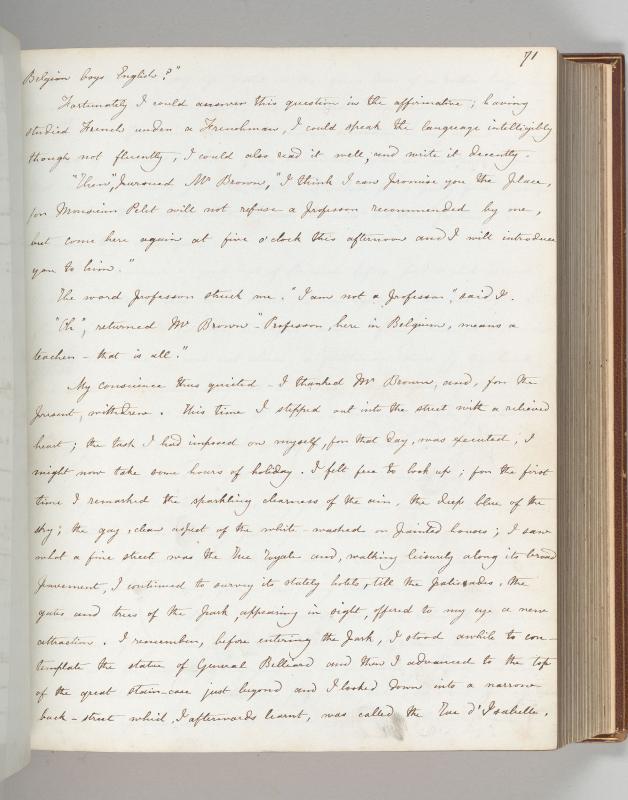 71
Belgian boys English?"
Fortunately I could answer this question in the affirmative; having
studied French under a Frenchman, I could speak the language intelligibly
though not fluently, I could also read it well, and write it decently.
"Then", pursued Mr Brown, "I think I can promise you the place,
for Monsieur Pelet will not refuse a professor recommended by me,
but come here again at five o'clock this afternoon and I will introduce
you to him."
The word professor struck me. "I am not a professor", said I.
"Oh", returned Mr Brown - "Professor, here in Belgium, means a
teacher - that is all."
My conscience thus quieted - I thanked Mr Brown, and, for the
present, withdrew. This time I stepped out into the street with a relieved
heart; the task I had imposed on myself, for that day, was executed; I
might now take some hours of holiday. I felt free to look up; for the first
time I remarked the sparkling clearness of the air, the deep blue of the
sky; the gay, clean aspect of the white-washed or painted houses; I saw
what a fine street was the Rue Royale and, walking leisurely along its broad
pavement, I continued to survey its stately hotels, till the palisades, the
gates and trees of the park, appearing in sight, offered to my eye a new
attraction. I remember, before entering the Park, I stood awhile to con-
template the statue of General Belliard and then I advanced to the top
of the great stair-case just beyond and I looked down into a narrow
back-street which, I afterwards learnt, was called the Rue d'Isabelle.